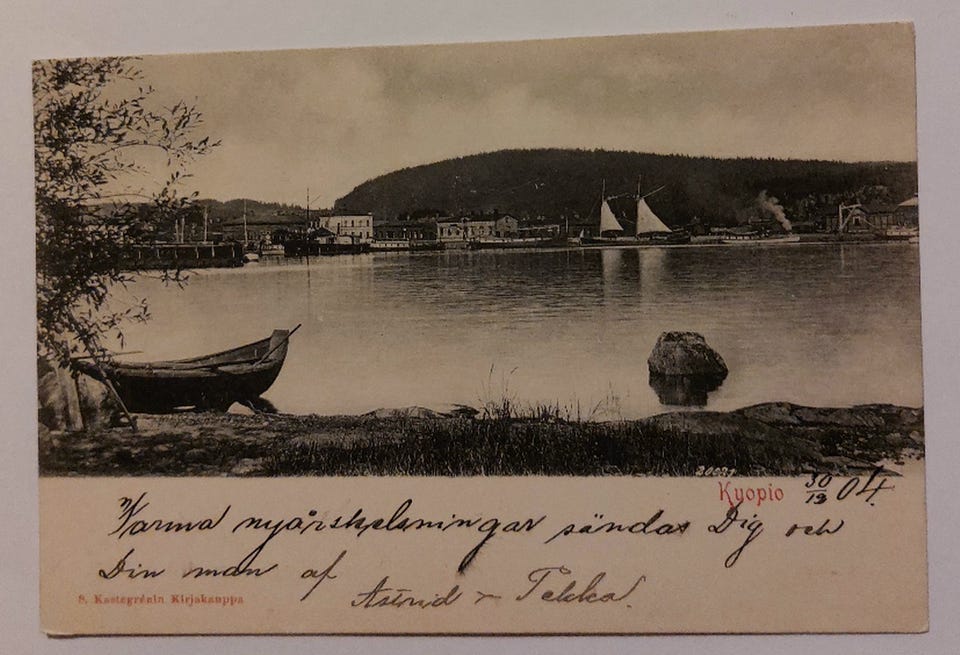 20081
Kyopio 30/12 04.
Varma nyårshelsningar sändas Dig och
Din man af
Astrid - Pekka.
S. Kastegrénin Kirjakauppa